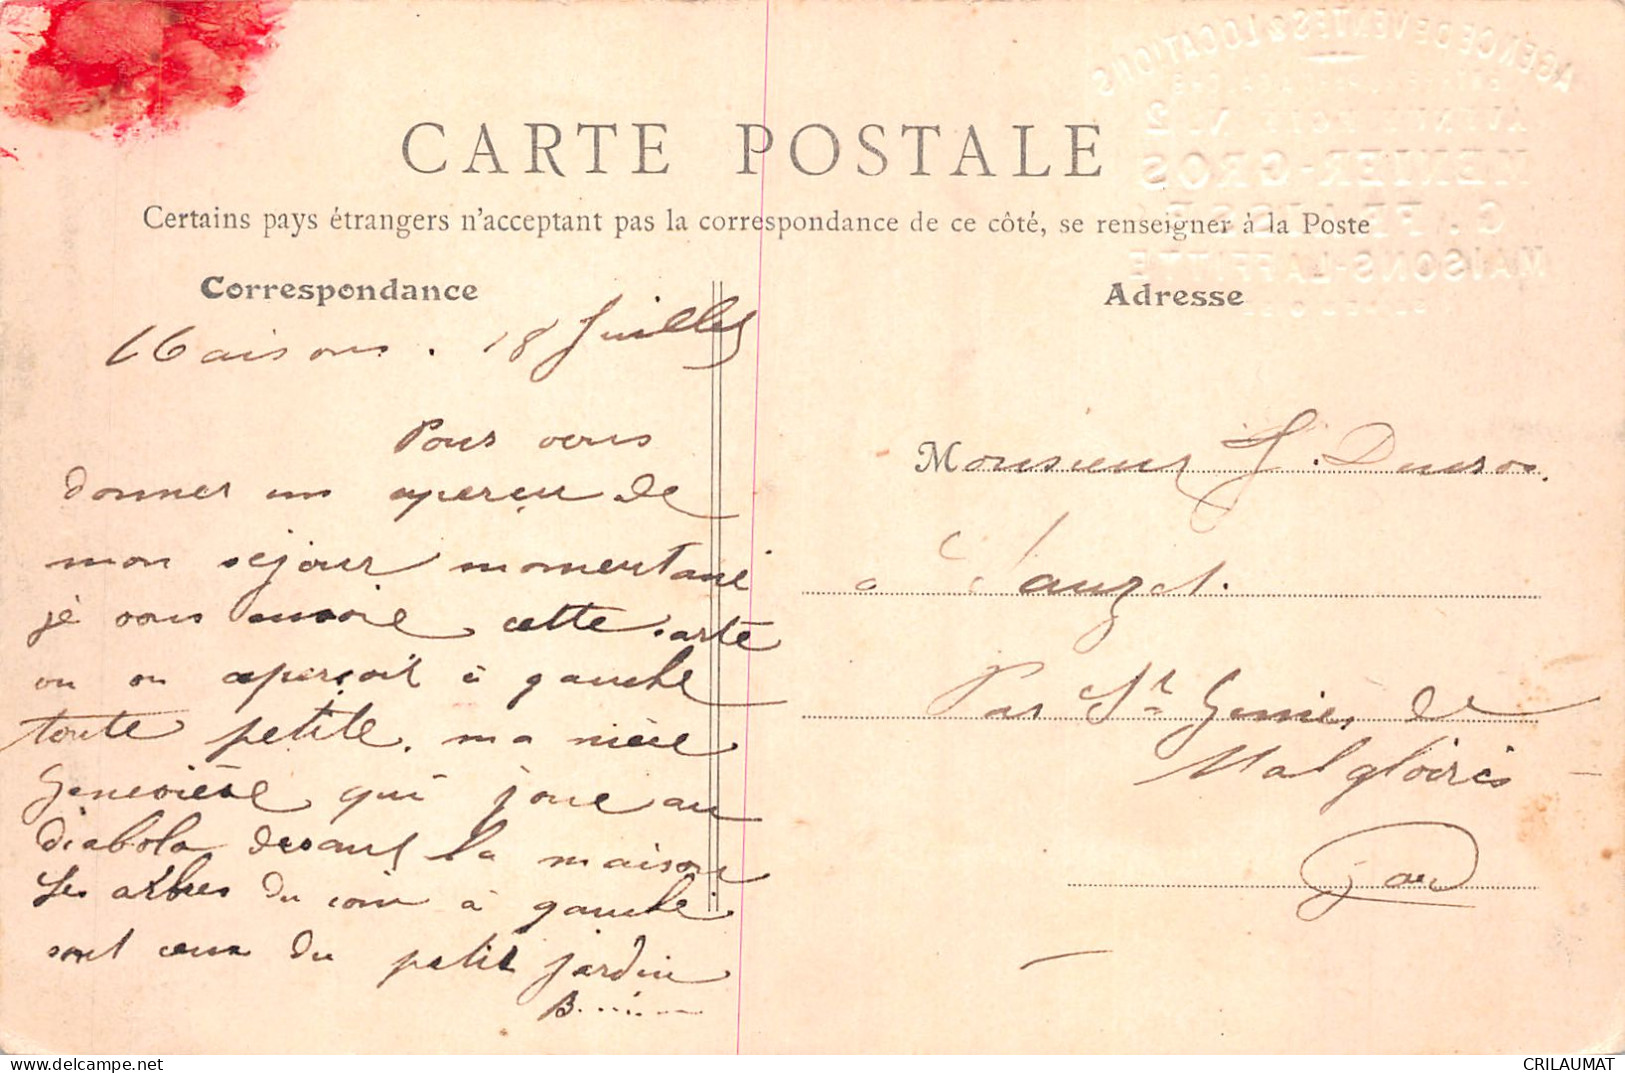 AGENCE DE VENTES & LOCATIONS
AVENUE N. 2
MENIER-GROS
MAISONS-LAFFITTE
CARTE POSTALE
Certains pays étrangers n'acceptent pas la correspondance de ce côté, se renseigner à la Poste
Correspondance
Adresse
Maisons. 18 Juillet
Pour vous
donner un aperçu de
mon séjour momentané
je vous envoie cette carte
ou on aperçoit à gauche
toute petite, ma nièce
Geneviève qui joue au
diabolo devant la maison
Les arbres du coin à gauche
sont ceux du petit jardin
B.......
Monsieur J. Ducros.
à Sauzet.
Par St Genies de
Malgloirès
Gard
CRILAUMAT